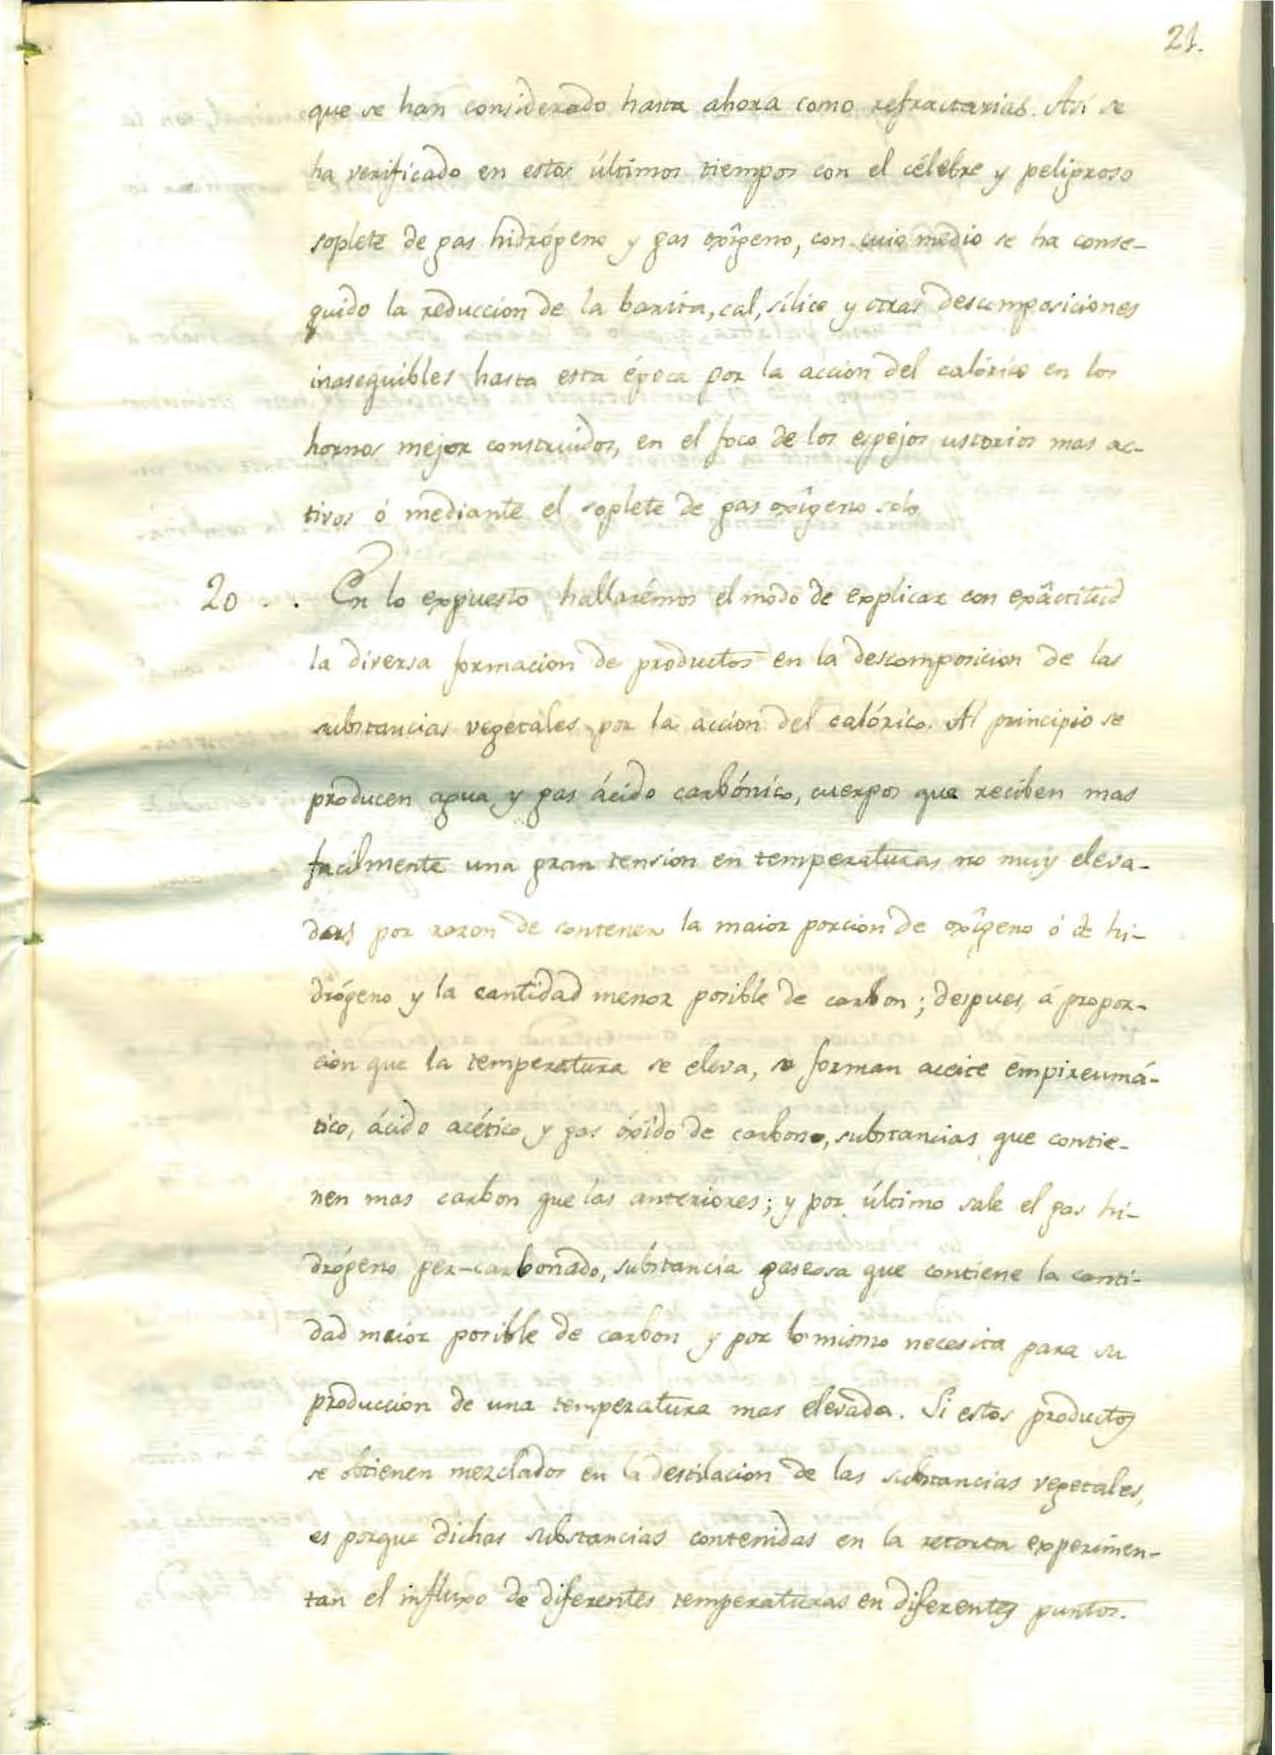 21.
que se han considerado hasta ahora como refractarias. Asi se
ha verificado en estos últimos tiempos con el célebre y peligroso
soplete de gas hidrógeno y gas oxîgeno, con cuio medio se ha conse-
guido la reduccion de la barita, cal, sílice y otras descomposiciones
inasequibles hasta esta época por la accion del calórico en los
hornos mejor construidos, en el foco de los espejos ustorios mas ac-
tivos ó mediante el soplete de gas oxîgeno solo.
20 . . En lo expuesto hallarémos el modo de explicar con exâctitud
la diversa formacion de productos en la descomposicion de las
substancias vegetales por la accion del calórico. Al principio se
producen agua y gas ácido carbónico, cuerpos que reciben mas
facilmente una gran tension en temperaturas no muy eleva-
das por razon de contener la maior porcion de oxîgeno ó de hi-
drógeno y la cantidad menor posible de carbon; despues, á propor-
cion que la temperatura se eleva, se forman aceite empireumá-
tico, ácido acético y gas óxîdo de carbono, substancias que contie-
nen mas carbon que las anteriores; y por último sale el gas hi-
drógeno per-carbonado, substancia gaseosa que contiene la canti-
dad maior posible de carbon y por lo mismo necesita para su
produccion de una temperatura mas elevada. Si estos productos
se obtienen mezclados en la destilacion de las substancias vegetales,
es porque dichas substancias contenidas en la retorta experimen-
tan el influxo de diferentes temperaturas en diferentes puntos.